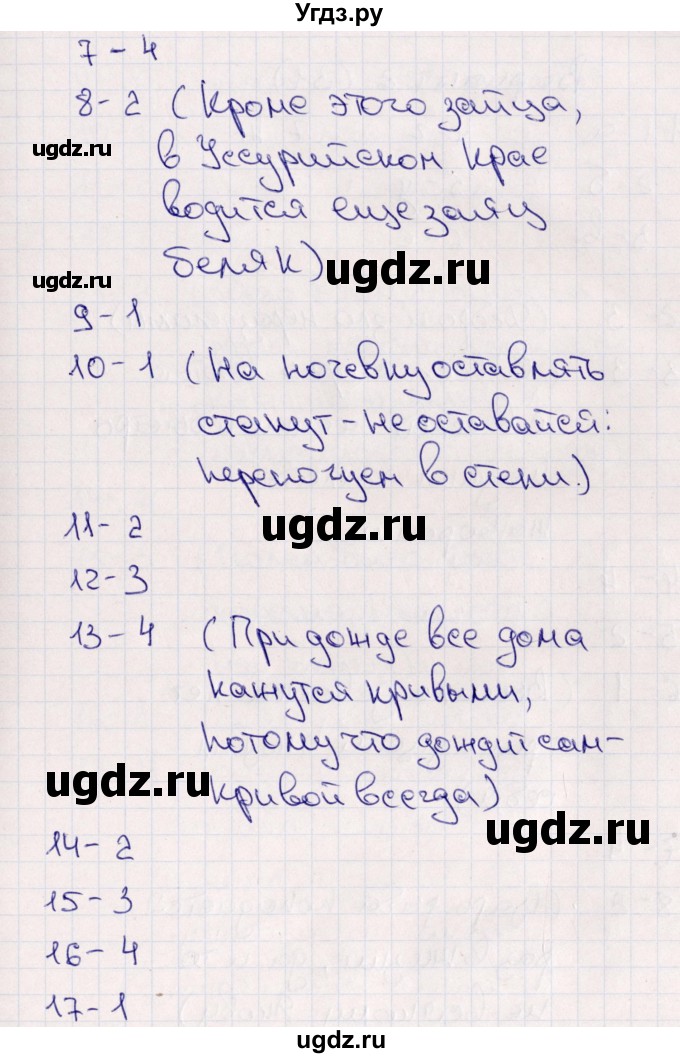 Угдз.ру
7 - 4
8 - 2 (Кроме этого зайца,
ugdz.ru
в Уссурийском крае
водится еще заяц
беляк)
ugdz.ru
ugdz.ru
9 - 1
10 - 1 (На ночевку оставлять
станут - не оставайся:
переночуем в степи.)
ugdz.ru
ugdz.ru
11 - 2
12 - 3
13 - 4 (При дожде все дома
кажутся кривыми,
потому что дождит сам-
ugdz.ru
кривой всегда)
ugdz.ru
14 - 2
15 - 3
16 - 4
17 - 1
ugdz.ru